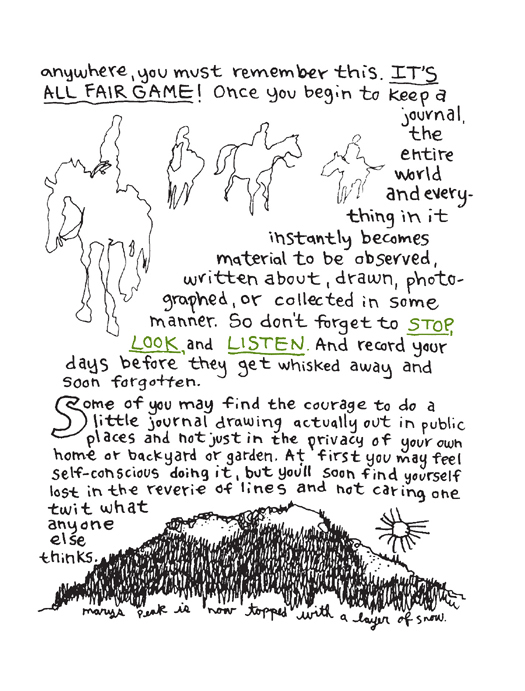 anywhere, you must remember this. IT'S
ALL FAIR GAME! Once you begin to keep a
journal,
the
entire
world
and every-
thing in it
instantly becomes
material to be observed,
written about, drawn, photo-
graphed, or collected in some
manner. So don't forget to STOP,
LOOK, and LISTEN. And record your
days before they get whisked away and
soon forgotten.
Some of you may find the courage to do a
little journal drawing actually out in public
places and not just in the privacy of your own
home or backyard or garden. At first you may feel
self-conscious doing it, but you'll soon find yourself
lost in the reverie of lines and not caring one
twit what
anyone
else
thinks.
marys Peak is now topped with a layer of snow.